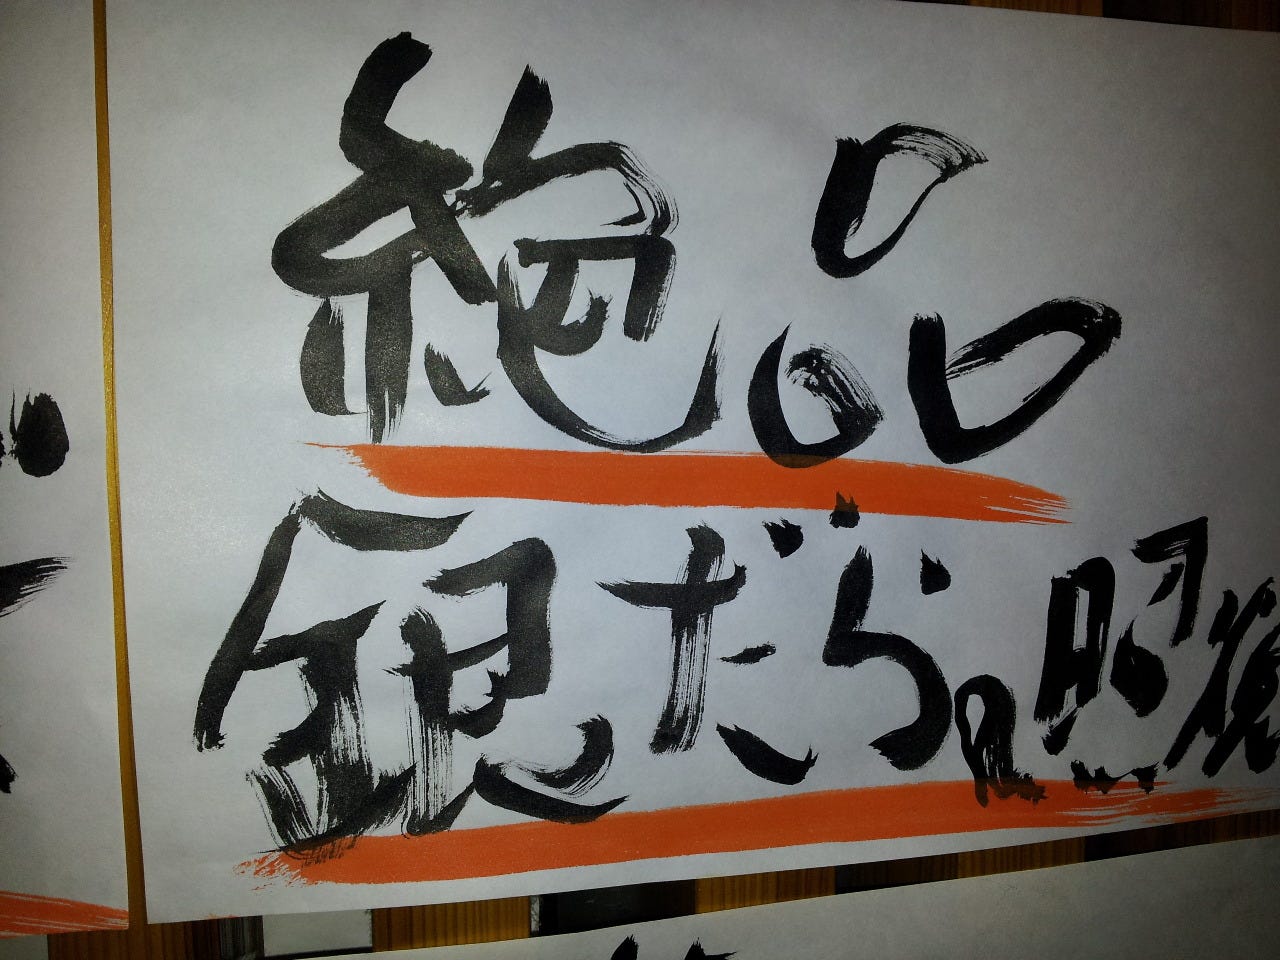 絶品
銀だらの照焼